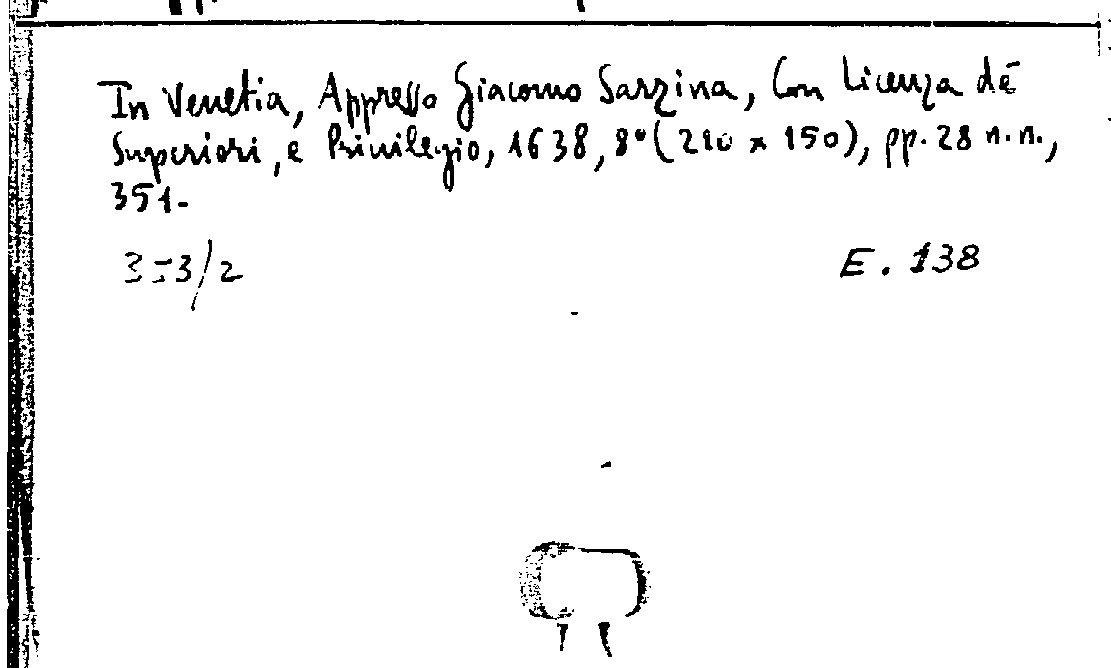 In Venetia, Appresso Giacomo Sarzina, Con Licenza dè
Superiori, e Priuilegio, 1638, 8° (210 x 150), pp. 28 n.n.,
351-
353/2
E. 138